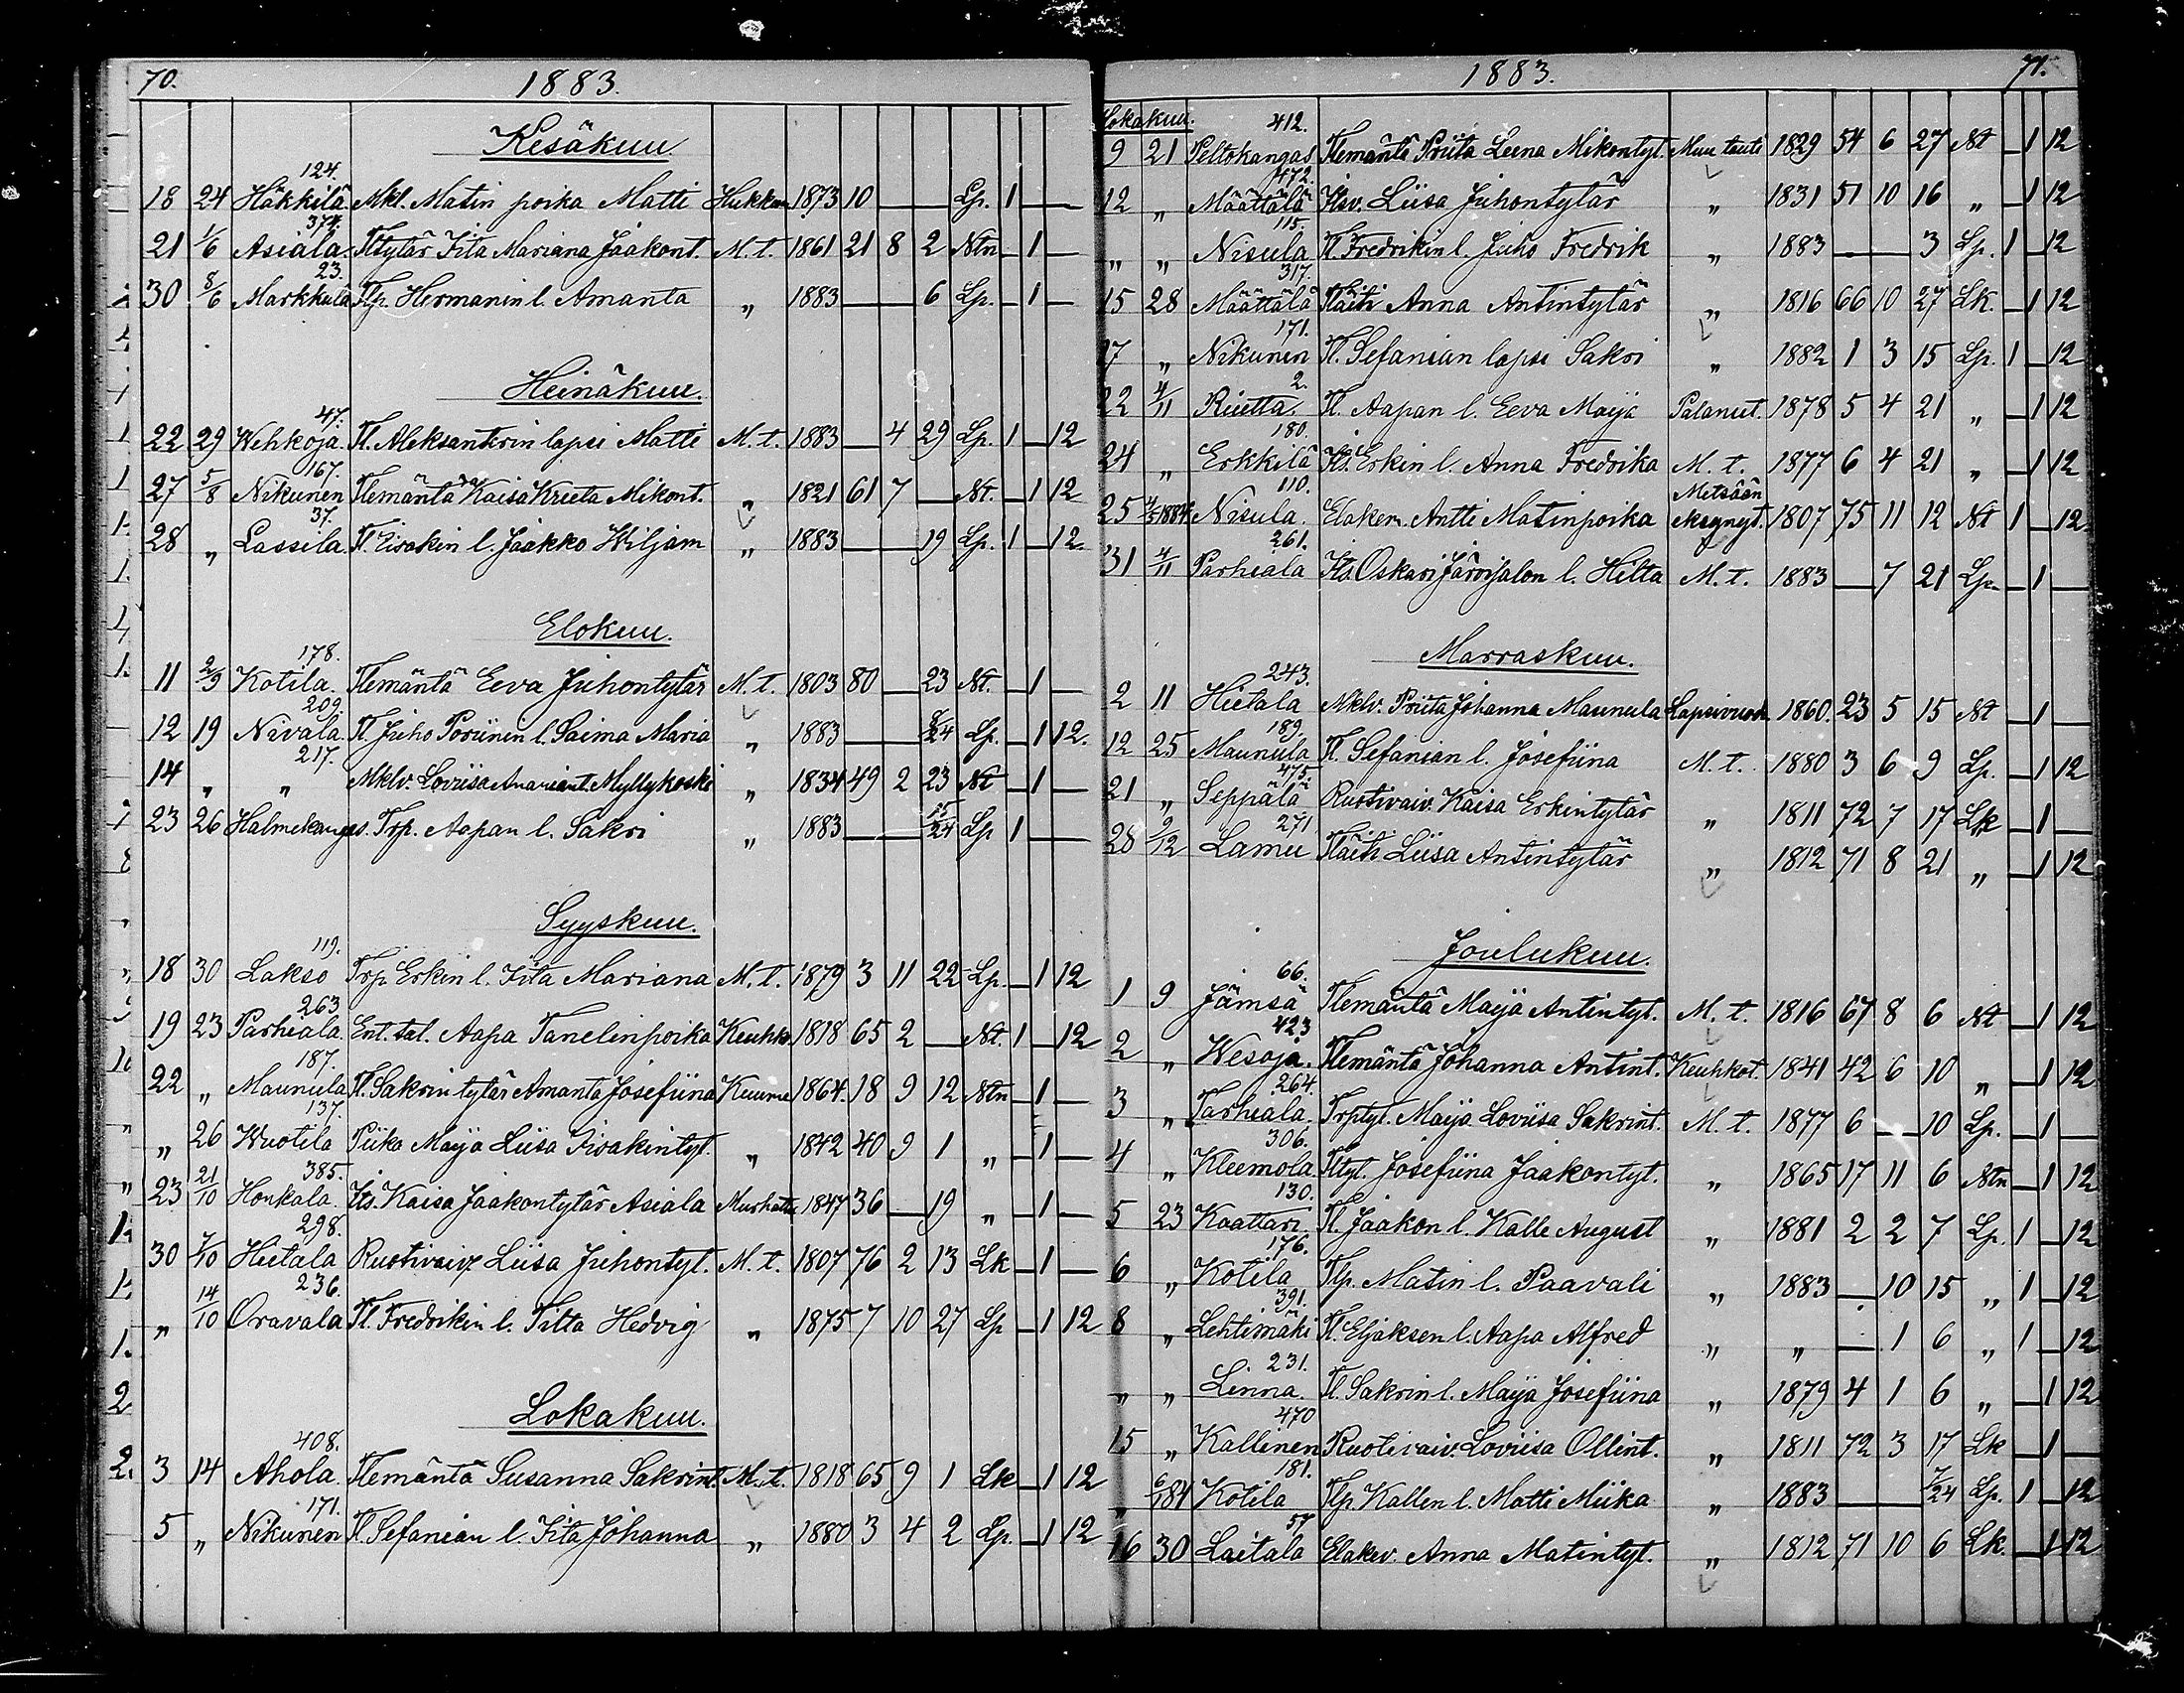 70. 1883.
Kesäkuu
124.
18 24 Häkkilä Mkl. Matin poika Matti Hukkun 1873 10 — Lp. 1 —
374.
21 1/6 Asiala. Tltytär Iita Mariana Jaakont. M. t. 1861 21 8 2 Ntn — 1 —
23.
30 8/6 Markkula Tlp. Hermanin l. Amanta „ 1883 — 6 Lp. — 1 —
Heinäkuu.
47.
22 29 Wehkoja. Tl. Aleksanterin lapsi Matti M. t. 1883 — 4 29 Lp. 1 — 12
167.
27 5/8 Nikunen Tlemäntä Kaisa Kreeta Mikont. „ 1821 61 7 — Nt. — 1 12
37.
28 „ Lassila. Tl. Eivakin l. Jaakko Wiljam „ 1883 — 19 Lp. 1 — 12.
Elokuu.
178.
11 2/9 Kotila. Tlemäntä Eeva Juhontytär M. t. 1803 80 — 23 Nt. — 1 —
209.
12 19 Nivala. Tl. Juho Poriinin l. Saima Maria „ 1883 — 8/24 Lp. — 1 12.
217.
14 „ „ Mklv. Loviisa Anariant. Myllykoski „ 1834 49 2 23 Nt — 1 —
23 26 Halmekangas. Trp. Aapan l. Sakri „ 1883 — 15/24 Lp 1 —
Syyskuu.
119.
18 30 Lakso Trp Erkin l. Iita Mariana M. t. 1879 3 11 22 Lp. — 1 12
263
19 23 Parhiala. Ent. tal. Aapa Tanelinpoika Keuhko. 1818 65 2 — Nt. 1 — 12
187.
22 „ Maunula Tl. Sakrin tytär Amanta Josefiina Kuume 1864. 18 9 12 Ntn — 1 —
137.
„ 26 Wuotila Piika Maija Liisa Iivakintyt. „ 1842 40 9 1 „ — 1 —
385.
23 21/10 Honkala. Its. Kaisa Jaakontytär Asiala Murhattu 1847 36 — 19 „ — 1 —
298.
30 7/10 Hietala Ruotivaiv. Liisa Juhontyt. M. t. 1807 76 2 13 Lk — 1 —
236.
„ 14/10 Oravala Tl. Fredrikin l. Tilta Hedvig „ 1875 7 10 27 Lp — 1 12
Lokakuu.
408.
3 14 Ahola Tlemäntä Susanna Sakrint. M. t. 1818 65 9 1 Lk — 1 12
171.
5 „ Nikunen Tl. Sefanian l. Iita Johanna „ 1880 3 4 2 Lp. — 1 12
1883. 71.
Lokakuu.
412.
9 21 Peltokangas Tlemäntä Priita Leena Mikontyt. Muu tauti 1829 54 6 27 Nt — 1 12
472.
12 „ Määttälä Itsv. Liisa Juhontytär „ 1831 51 10 16 „ — 1 12
115.
„ „ Nisula Tl. Fredrikin l. Juho Fredrik „ 1883 — 3 Lp. 1 — 12
317.
15 28 Määttälä Tläiti Anna Antintytär „ 1816 66 10 27 Lk. — 1 12
171.
17 „ Nikunen Tl. Sefanian lapsi Sakri „ 1882 1 3 15 Lp. 1 — 12
2.
22 4/11 Riutta. Tl. Aapan l. Eeva Maija Palanut. 1878 5 4 21 „ — 1 12
180.
24 „ Erkkilä Its. Erkin l. Anna Fredrika M. t. 1877 6 4 21 „ — 1 12
110. Metsään
25 1884. Nisula. Eläkem. Antti Matinpoika eksynyt. 1807 75 11 12 Nt 1 — 12.
261.
31 4/11 Parhiala Its Oskari Järvijalon l. Hilta M. t. 1883 — 7 21 Lp. — 1 —
Marraskuu.
243.
2 11 Hietala Mklv. Priita Johanna Maunula Lapsivuod. 1860. 23 5 15 Nt — 1 —
189.
12 25 Maunula Tl. Sefanian l. Josefiina M. t. 1880 3 6 9 Lp. — 1 12
475.
21 „ Seppälä Ruotivaiv. Kaisa Erkintytär „ 1811 72 7 17 Lk — 1 —
271
28 9/12 Lamu Tläiti Liisa Antintytär „ 1812 71 8 21 „ — 1 12
Joulukuu.
66.
1 9 Jämsä Tlemäntä Maija Antintyt. M. t. 1816 67 8 6 Nt — 1 12
423
2 „ Wesoja. Tlemäntä Johanna Antint. Keuhkot. 1841 42 6 10 „ — 1 12
264.
3 „ Parhiala. Trptyt. Maija Loviisa Sakrint. M. t. 1877 6 — 10 Lp. — 1 —
306.
4 „ Kleemola. Tltyt. Josefiina Jaakontyt. „ 1865 17 11 6 Ntn — 1 12
130.
5 23 Kaattari. Tl. Jaakon l. Kalle August „ 1881 2 2 7 Lp. 1 — 12
176.
6 „ Kotila Tlp. Matin l. Paavali „ 1883 — 10 15 „ 1 — 12
391.
8 „ Lehtimäki Tl. Eljaksen l. Aapa Alfred „ „ — 1 6 „ 1 — 12
231.
„ „ Linna. Tl. Sakrin l. Maija Josefiina „ 1879 4 1 6 „ — 1 12
470
15 „ Kallinen Ruotivaiv. Loviisa Ollint. „ 1811 72 3 17 Lk — 1 —
181.
„ 6/184 Kotila Tlp Kallen l. Matti Miika „ 1883 — 7/24 Lp. 1 — 12
57.
16 30 Laitala Eläkev. Anna Matintyt. „ 1812 71 10 6 Lk. — 1 12